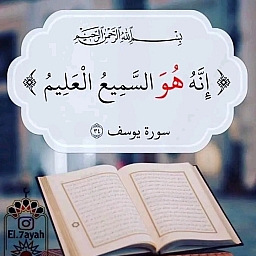 بسم الله الرحمن الرحيم
﴿ إِنَّهُ هُوَ السَّمِيعُ الْعَلِيمُ ﴾
سورة يوسف ٣٤
El.7ayah